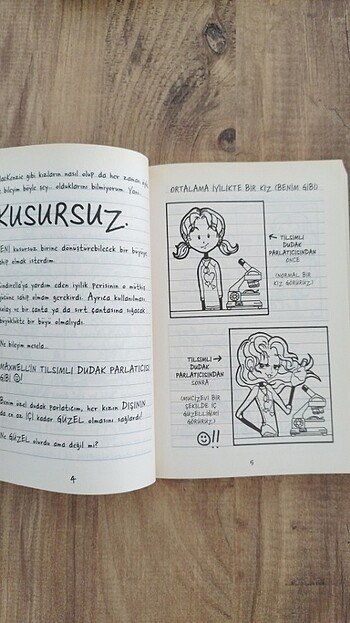 MacKenzie gibi kızların nasıl olup da her zaman
bileyim böyle şey... olduklarını bilmiyorum. Yani...
KUSURSUZ.
BENİ kusursuz birine dönüştürebilecek bir büyüye
sahip olmak isterdim.
Sindirella'ya yardım eden iyilik perisinin o müthiş
gücüne sahip olmam gerekirdi. Ayrıca kullanılması
kolay ve bir çanta ya da sırt çantasına sığacak
büyüklükte bir büyü olmalıydı.
Ne bileyim mesela...
MAXWELL'İN TILSIMLI DUDAK PARLATICISI
GİBİ ☺!
Benim özel dudak parlatıcım, her kızın DIŞININ
da en az İÇİ kadar GÜZEL olmasını sağlardı!
Ne GÜZEL olurdu ama değil mi?
4
ORTALAMA İYİLİKTE BİR KIZ (BENİM GİBİ)...
← TILSIMLI
DUDAK
PARLATICISINDAN
ÖNCE
(NORMAL BİR
KIZ GÖRÜRÜZ)
TILSIMLI →
DUDAK
PARLATICISINDAN
SONRA
(MUCİZEVİ BİR
ŞEKİLDE İÇ
GÜZELLİĞİNİ
GÖRÜRÜZ)
☺!!
5